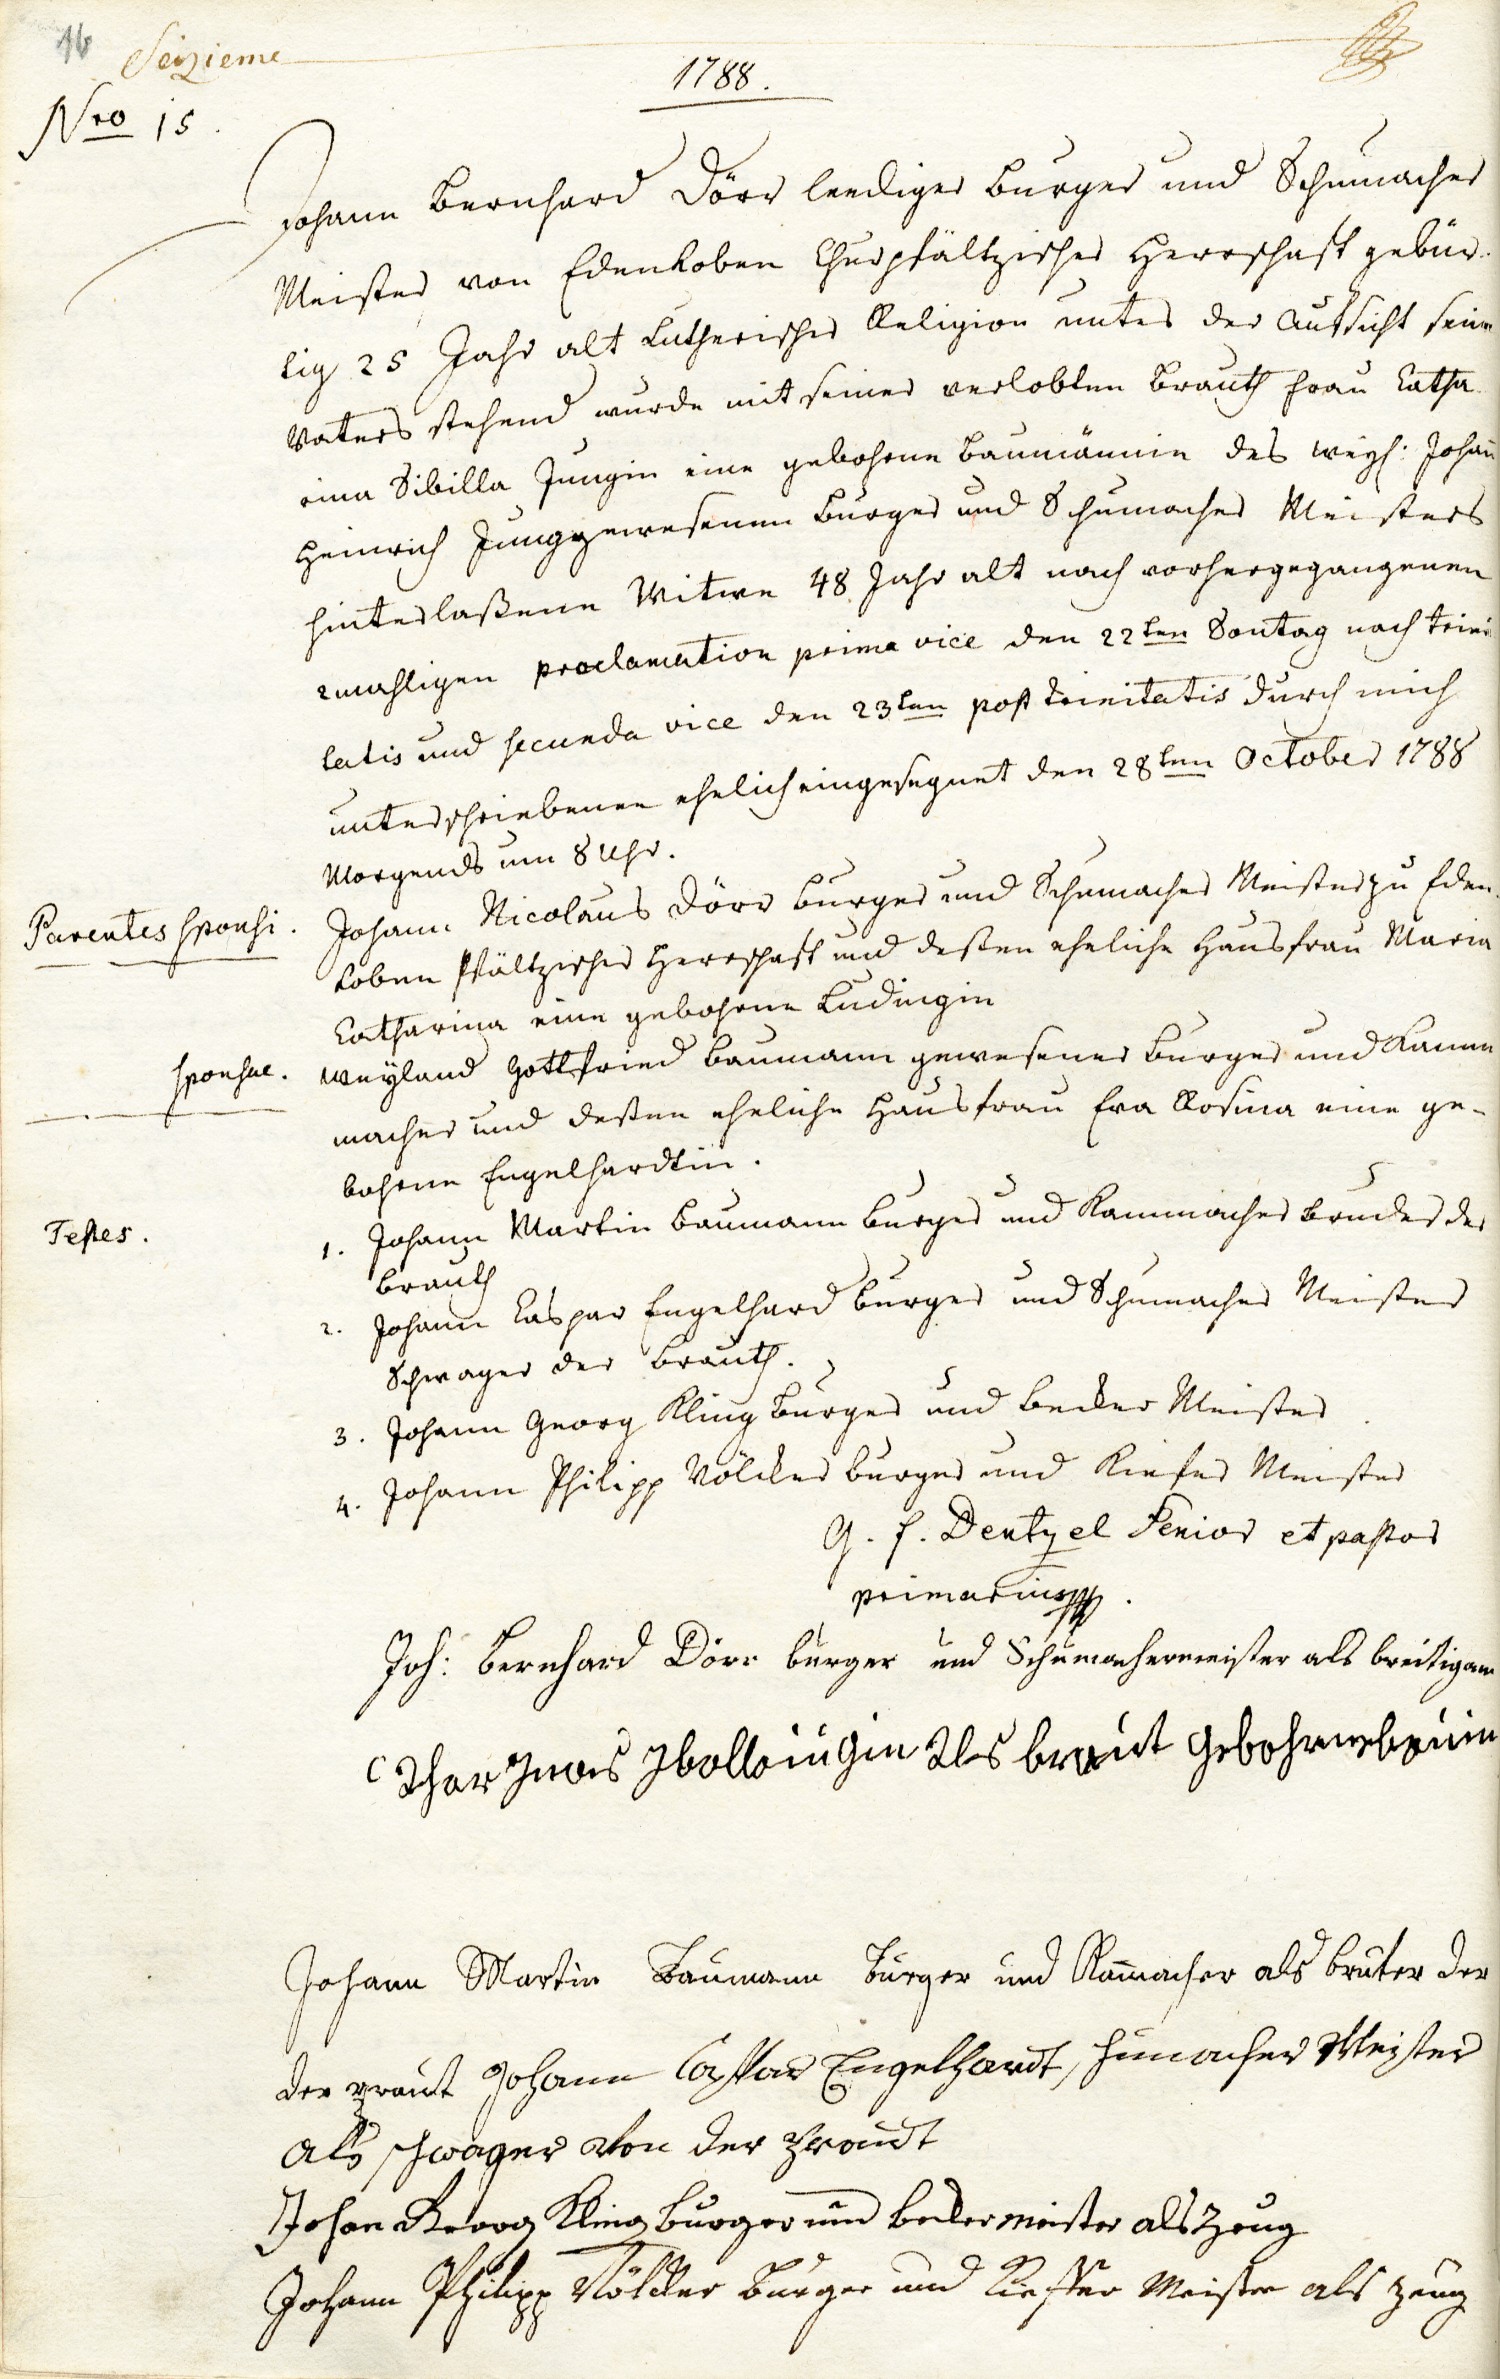 16 Seizieme
1788.
Nro 15.
Johann Bernhard Dörr leediger Burger und Schumacher
Meister von Edenkoben Churpfältzischer Herrschaft gebür-
tig 25 Jahr alt Lutherischer Religion unter der Aufsicht seines
Vaters stehend wurde mit seiner verlobten Brauth Frau Catha-
rina Sibilla Jungin eine gebohrne Baumännin des weyl: Johann
Heinrich Jung gewesenen Burger und Schumacher Meisters
hinterlaßene Witwe 48 Jahr alt nach vorhergegangenen
2mahligen proclamation prima vice den 22ten Sontag nach trini
tatis und secunda vice den 23ten post trinitatis durch mich
unterschriebenen ehelich eingesegnet den 28ten October 1788
Morgends um 8 Uhr.
Parentes sponsi. Johann Nicolaus Dörr Burger und Schumacher Meister zu Eden-
koben Pfältzischer Herrschaft und deßen eheliche Hausfrau Maria
Catharina eine gebohrne Ludingin
sponsae. Weyland Gottfried Baumann gewesener Burger und Kamm
macher und deßen eheliche Hausfrau Eva Rosina eine ge-
bohrne Engelhardtin.
Testes. 1. Johann Martin Baumann Burger und Kammacher Bruder der
Brauth
2. Johann Caspar Engelhard Burger und Schumacher Meister
Schwager der Brauth.
3. Johann Georg Kling Burger und Becker Meister
4. Johann Philipp Völcker Burger und Kiefer Meister
G. F. Dentzel Senior et pastor
primarius
Joh: Bernhard Dörr burger und Schumachermeister als breitigam
Als braut Gebohrne
Johann Martin Baumann Burger und Kammacher als bruter der
der braut Johann Casspar Engelhardt, schumacher Meister
als schwager von der Braudt
Johan Georg Kling Burger und beckermeister als Zeug
Johann Philipp Völcker Burger und Kieffer Meister als zeug